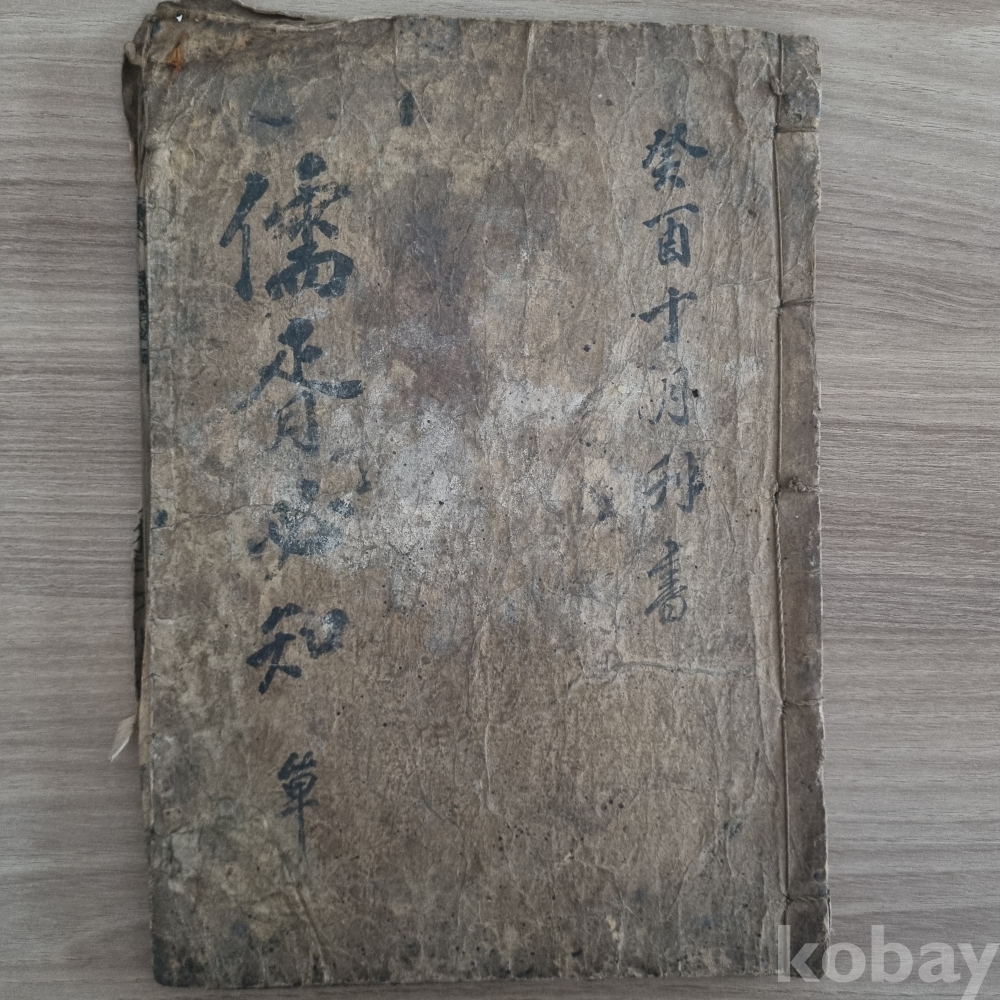 癸酉十月刋書
儒胥必知 單
kobay